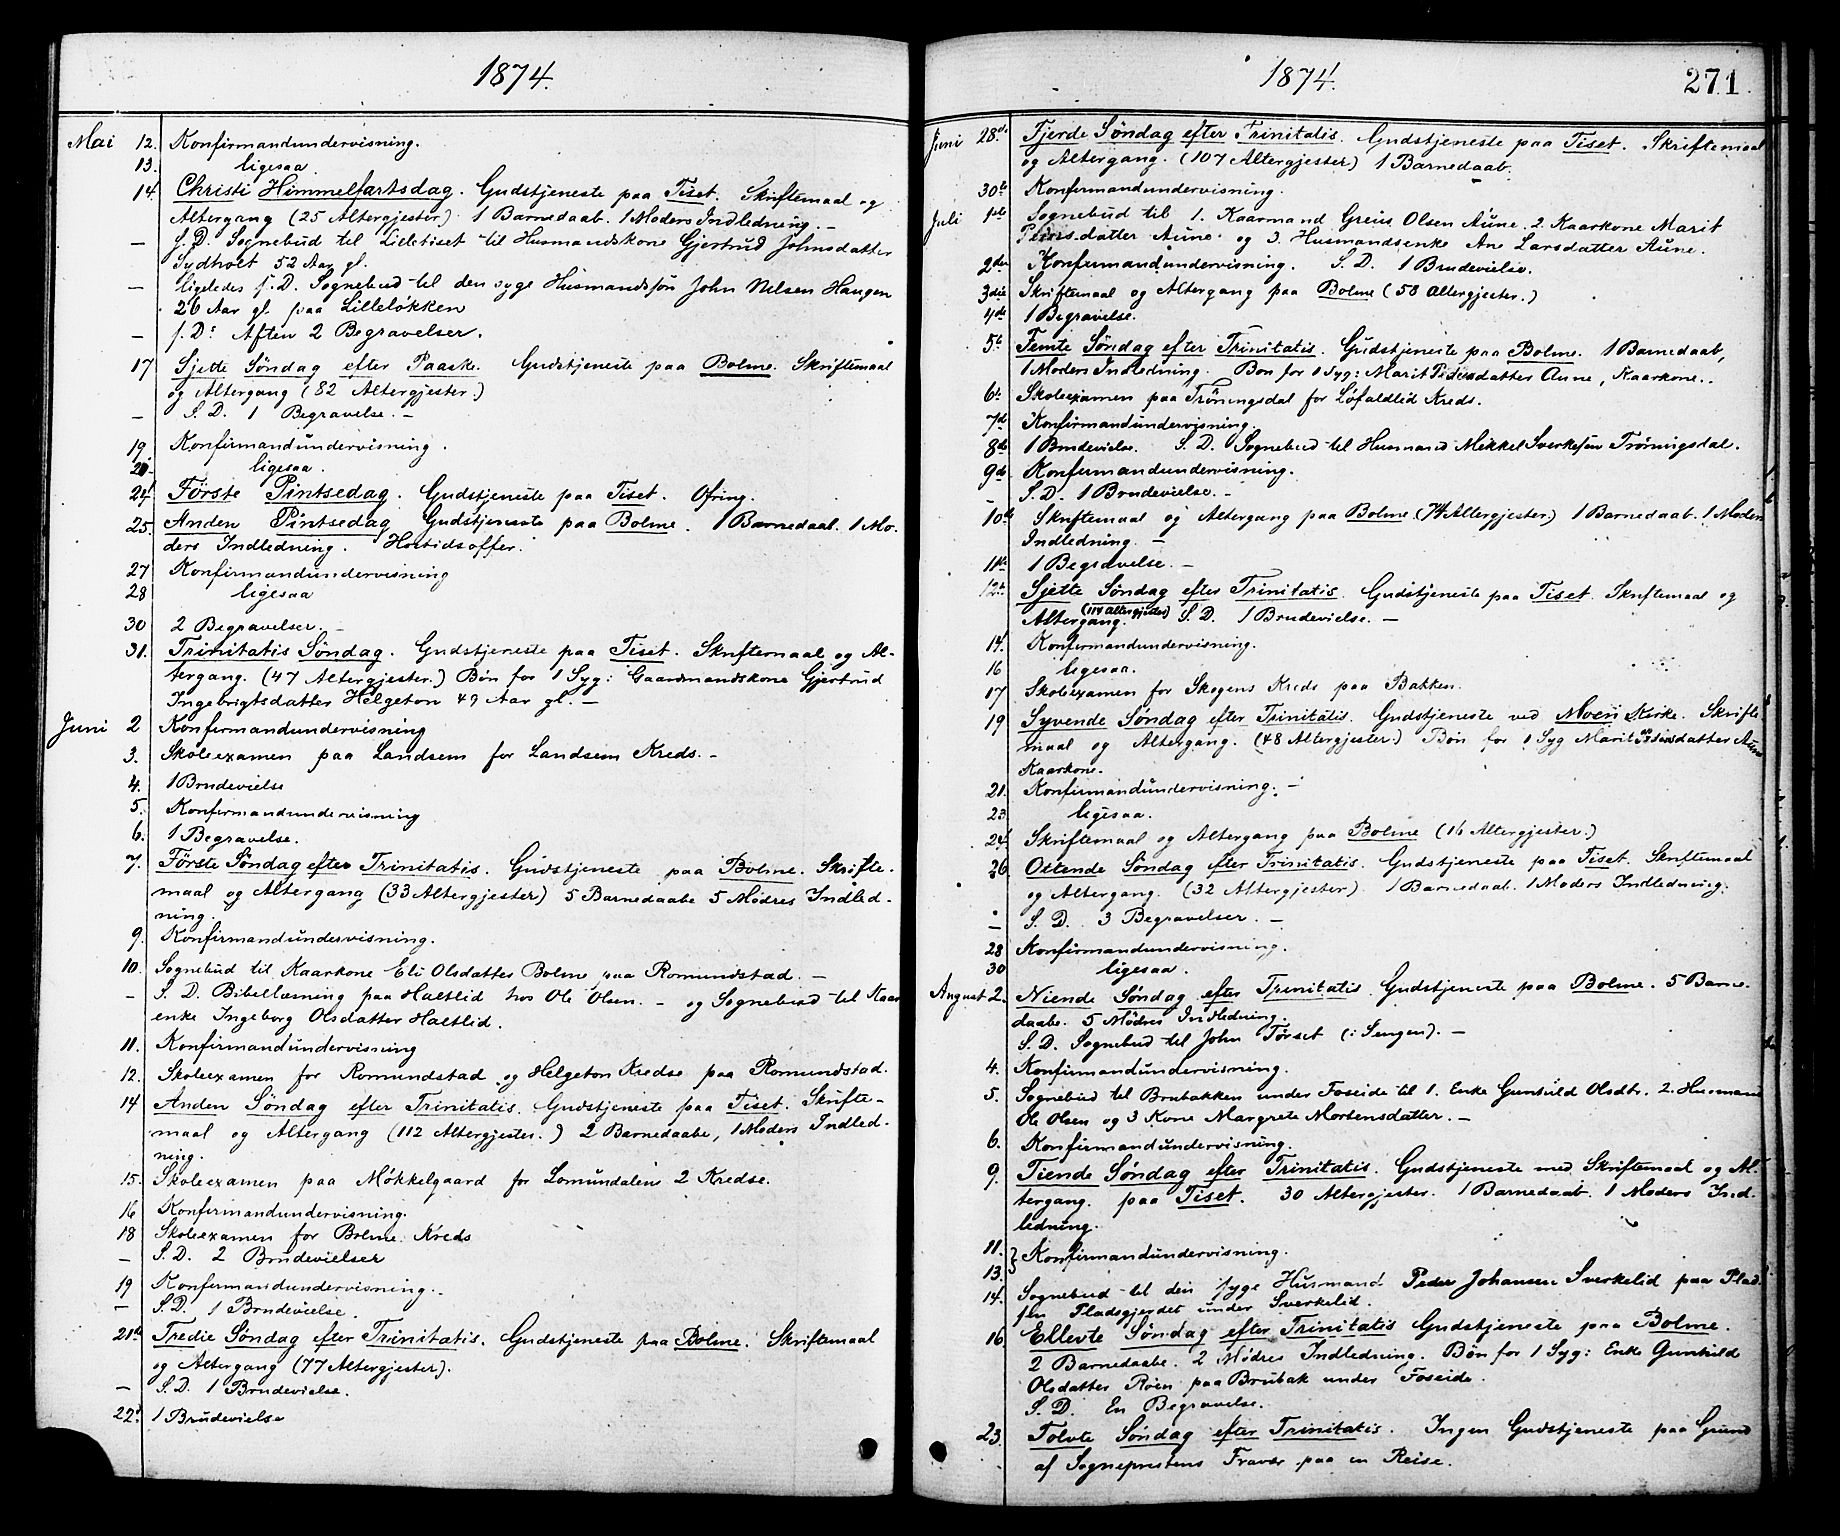 1874.
Mai 12. Konfirmandundervisning.
13. ligesaa
14. Christi Himmelfartsdag. Gudstjeneste paa Tiset. Skriftemaal og
Altergang (25 Altergjester) 1 Barnedaab. 1 Moders Indledning. –
— S. D. Sognebud til Lilletiset til Husmandskone Gjertrud Johnsdatter
Sydholt 52 Aar gl.
— Ligeledes s. D. Sognebud til den syge Husmandssøn John Nelsen Haugen
26 Aar gl. paa Lilleløkken
— s. D. Aften 2 Begravelser.
17 Sjette Søndag efter Paaske. Gudstjeneste paa Bolme. Skriftemaal
og Altergang (82 Altergjester.)
— S. D. 1 Begravelse. –
19 Konfirmandundervisning.
21. ligesaa.
24 Første Pintsedag. Gudstjeneste paa Tiset. Ofring.
25. Anden Pintsedag Gudstjeneste paa Bolme. 1 Barnedaab. 1 Mo-
ders Indledning. Høitidsoffer.
27 Konfirmandundervisning
28 ligesaa
30 2 Begravelser. –
31. Trinitatis Søndag. Gudstjeneste paa Tiset. Skriftemaal og Al-
tergang. (47 Altergjester.) Bøn for 1 Syg: Gaardmandskone Gjertrud
Ingebrigtsdatter Helgeton 49 Aar gl. –
Juni 2 Konfirmandundervisning
3. Skoleexamen paa Landsem for Landsem Kreds. –
4. 1 Brudevielse
5. Konfirmandundervisning
6. 1 Begravelse.
7. Første Søndag efter Trinitatis. Gudstjeneste paa Bolme. Skrifte-
maal og Altergang (33 Altergjester) 5 Barnedaabe 5 Mødres Indled-
ning.
9. Konfirmandundervisning.
10. Sognebud til Kaarkone Eli Olsdatter Bolme paa Romundstad. –
— S. D. Bibellæsning paa Haltlid hos Ole Olsen. – og Sognebud til Kaar
enke Ingeborg Olsdatter Haltlid.
11. Konfirmandundervisning
12. Skoleexamen for Romundstad og Helgeton Kredse paa Romundstad.
14 Anden Søndag efter Trinitatis. Gudstjeneste paa Tiset. Skrifte-
maal og Altergang (112 Altergjester.) 2 Barnedaabe, 1 Moders Indled-
ning.
15. Skoleexamen paa Møkkelgaard for Lomundalens 2 Kredse.
16 Konfirmandundervisning.
18 Skoleexamen for Bolme Kreds
— S. D. 2 Brudevielser
19 Konfirmandundervisning..
— S. D. 1 Brudevielse
21de Tredie Søndag efter Trinitatis. Gudstjeneste paa Bolme. Skriftemaal
og Altergang (77 Altergjester).
— S. D. 1 Brudevielse.
22d 1 Brudevielse
1874. 271.
Juni 28de Fjerde Søndag efter Trinitatis. Gudstjeneste paa Tiset. Skriftemaal
og Altergang. (107 Altergjester) 1 Barnedaab.
30te Konfirmandundervisning.
Juli 1ste Sognebud til 1. Kaarmand Greius Olsen Aune. 2. Kaarkone Marit
Pedersdatter Aune og 3. Husmandsenke Ane Larsdatter Aune.
2den Konfirmandundervisning. S. D. 1 Brudevielse.
3die Skriftemaal og Altergang paa Bolme (58 Altergjester.)
4de 1 Begravelse.
5te Femte Søndag efter Trinitatis. Gudstjeneste paa Bolme. 1 Barnedaab,
1 Moders Indledning. Bøn for 1 Syg: Marit Pedersdatter Aune, Kaarkone..
6te Skoleexamen paa Trøningsdal for Løfaldlid Kreds.
7de Konfirmandundervisning.
8de 1 Brudevielse. S. D. Sognebud til Husmand Mikkel Sverkesen Trøningsdal.
9de Konfirmandundervisning.
– S. D. 1 Brudevielse. –
10de Skriftemaal og Altergang paa Bolme (74 Altergjester) 1 Barnedaab. 1 Moders
Indledning. –
11te 1 Begravelse. –
12te Sjette Søndag efter Trinitatis. Gudstjeneste paa Tiset. Skriftemaal og
Altergang. (114 Altergjester) S. D. 1 Brudevielse. –
14. Konfirmandundervisning.
16 ligesaa.
17 Skoleexamen for Skogens Kreds paa Bakken.
19 Syvende Søndag efter Trinitatis. Gudstjeneste ved Moen Kirke. Skrifte
maal og Altergang. (48 Altergjester.) Bøn for 1 Syg Marit Pedersdatter Aune
Kaarkone.
21. Konfirmandundervisning. –
23 ligesaa.
24 Skriftemaal og Altergang paa Bolme (16 Altergjester.)
26. Ottende Søndag efter Trinitatis. Gudstjeneste paa Tiset. Skriftemaal
og Altergang. (32 Altergjester) 1 Barnedaab. 1 Moders Indledning.
– S. D. 3 Begravelser. –
28 Konfirmandundervisning.
30 ligesaa.
August 2. Niende Søndag efter Trinitatis. Gudstjeneste paa Bolme. 5 Barne-
daabe. 5 Mødres Indledning.
S. D. Sognebud til John Tørset (i Sengen). –
4. Konfirmandundervisning.
5. Sognebud til Brubakken under Foseide til 1. Enke Gunhild Olsdtr. 2. Husmand
Ole Olsen og 3 Kone Margrete Mortensdatter. –
6. Konfirmandundervisning.
9. Tiende Søndag efter Trinitatis. Gudstjeneste med Skriftemaal og Al-
tergang. paa Tiset. 30 Altergjester. 1 Barnedaab. 1 Moders Ind-
ledning.
11. } Konfirmandundervisning.
13.
14. Sognebud til den syge Husmand Peder Johansen Sverkelid paa Plad-
sen Pladsgjerdet under Sverkelid.
16 Ellevte Søndag efter Trinitatis Gudstjeneste paa Bolme.
2 Barnedaabe. 2 Mødres Indledning. Bøn for 1 Syg: Enke Gunhild
Olsdatter Røen paa Brubak under Foseide.
S. D. En Begravelse.
23. Tolvte Søndag efter Trinitatis. Ingen Gudstjeneste paa Grund
af Sogneprestens Fravær paa en Reise.